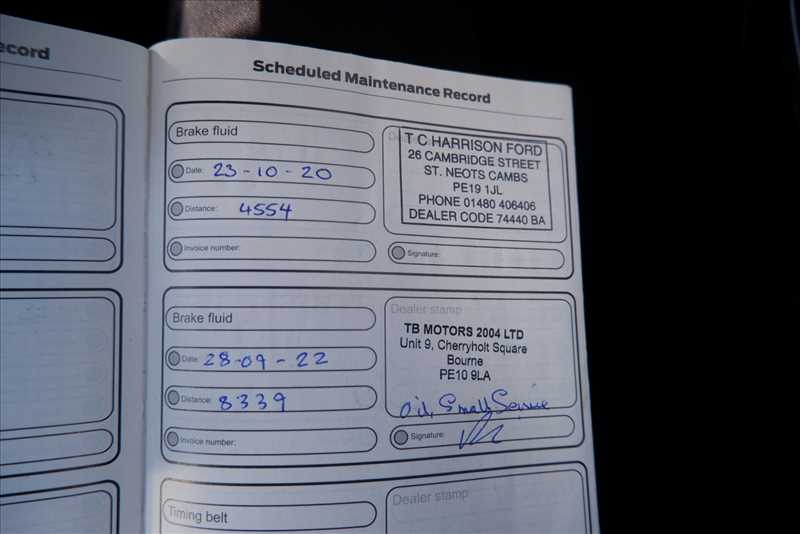 ecord
Scheduled Maintenance Record
Brake fluid
Date: 23-10-20
Distance: 4554
Invoice number:
De
T C HARRISON FORD
26 CAMBRIDGE STREET
ST. NEOTS CAMBS
PE19 1JL
PHONE 01480 406406
DEALER CODE 74440 BA
Signature:
Brake fluid
Date: 28-09-22
Distance: 8339
Invoice number:
Dealer stamp
TB MOTORS 2004 LTD
Unit 9, Cherryholt Square
Bourne
PE10 9LA
Oil, Small Service
Signature:
Timing belt
Dealer stamp